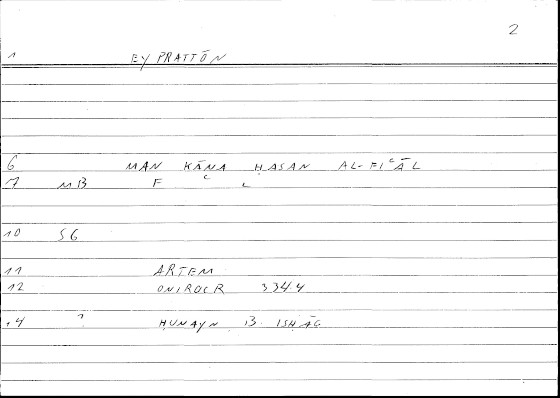 2
1 EY PRATTŌN
6 MAN KĀNA ḤASAN AL-FIʿĀL
7 MB F ʿ L
10 SG
11 ARTEM
12 ONIROCR 334.4
14 ? ḤUNAYN B. ISḤĀQ